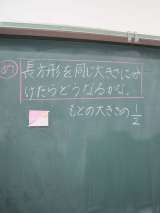 め
長方形を同じ大きさに分
けたらどうなるかな。
もとの大きさの1/2